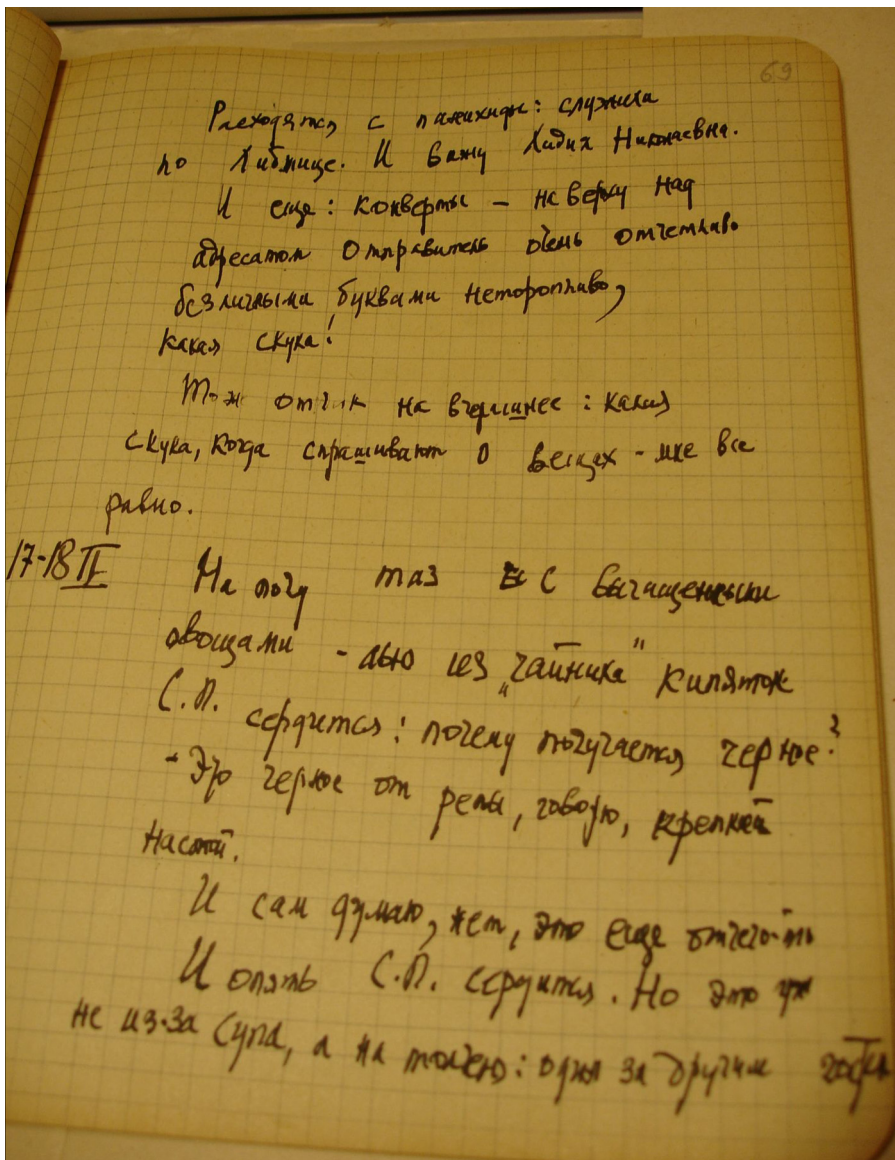 69
Расходятся с панихиды: служили
по Либмице. И вижу Лидия Николаевна.
И еще: конверты – на верху над
адресатом отправитель очень отчетливо
безличными буквами неторопливо,
какая скука!
на вчерашнее: какая
скука, когда спрашивают о вещах – мне все
равно.
17-18 II На полу таз с вычищенными
овощами – лью из „чайника" кипяток
С.П. сердится: почему получается черное?
– Это черное от репы, говорю, крепкий
настой.
И сам думаю, нет, это еще отчего-то
И опять С.П. сердится. Но это уж
не из-за супа, а на толчею: один за другим гости